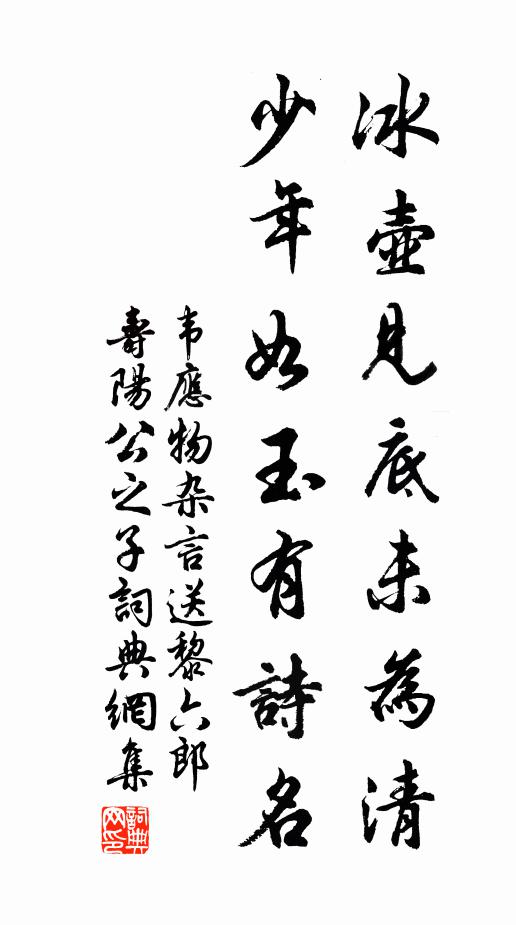 冰壺見底未為清
少年如玉有詩名
韦應物杂言送黎六郎
壽陽公之子詞典網集
詞典网印